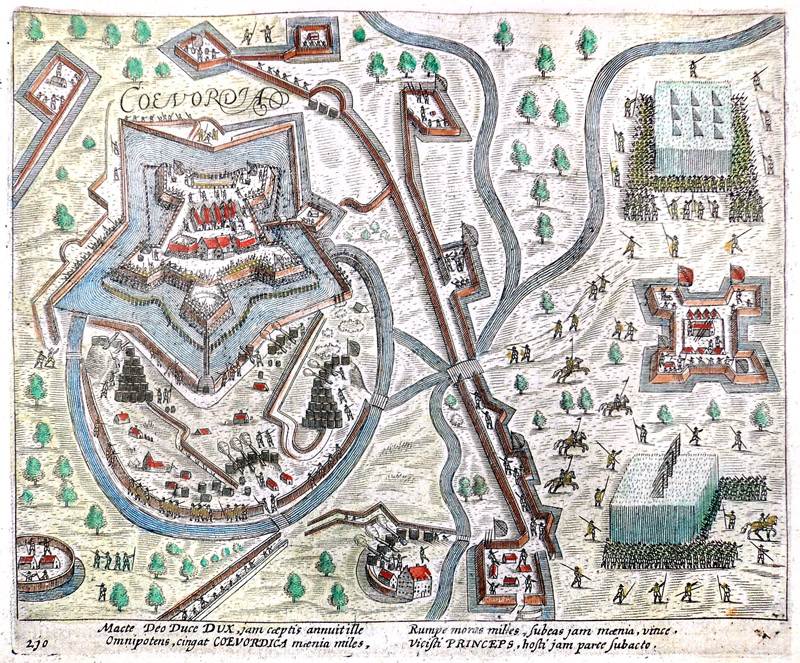 COEVORDIA
Macte Deo Duce DUX, jam cæptis annuit ille
Omnipotens, cingat COEVORDICA mænia miles,
Rumpe moras miles, subeas jam mænia, vince,
Vicisti PRINCEPS, hosti jam parce subacto.
230